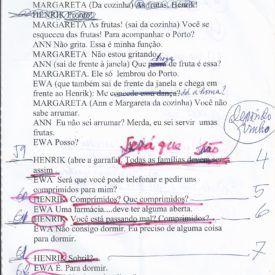 MARGARETA (Da cozinha) As frutas, Henrik!
HENRIK Pronto?
MARGARETA As frutas! (sai da cozinha) Você se
esqueceu das frutas! Para acompanhar o Porto?
ANN Não grita. Essa é minha função.
MARGARETA Não estou gritando.
ANN (sai de frente à janela) Que de fruta é essa?
MARGARETA. Ele só lembrou do Porto.
EWA (que também sai de frente da janela e chega em
frente ao Henrik): Me concede essa dança?
MARGARETA (Ann e Margareta da cozinha) Você não
sabe arrumar.
ANN Eu não sei arrumar? Merda, eu sei servir umas
frutas.
EWA Posso?
Será que são
59
4
HENRIK (abre a garrafa) Todas as famílias devem ser
assim
EWA Será que você pode telefonar e pedir uns
comprimidos para mim?
5
HENRIK Comprimidos? Que comprimidos?
EWA Uma farmácia....deve ter alguma aberta.
6
HENRIK Você está passando mal? Comprimidos?
EWA Não consigo dormir. Eu preciso de alguma coisa
para dormir.
7
HENRIK Sobril?
EWA É. Para dormir.